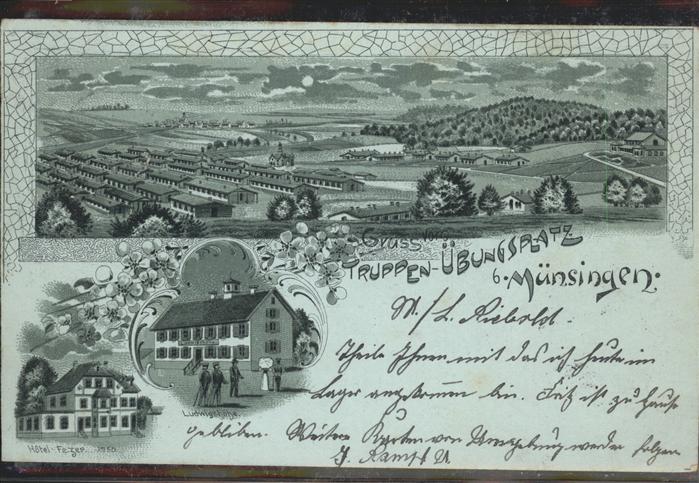 Gruss vom
TRUPPEN-ÜBUNGSPLATZ
b. Münsingen.
M./L.
Theile Ihnen mit das ich heute im
Lager angekommen bin. ist zu Hause
gebliben. Weitere Karten von Umgebung werden folgen
Ludwigshöhe.
Hôtel-Fezer.